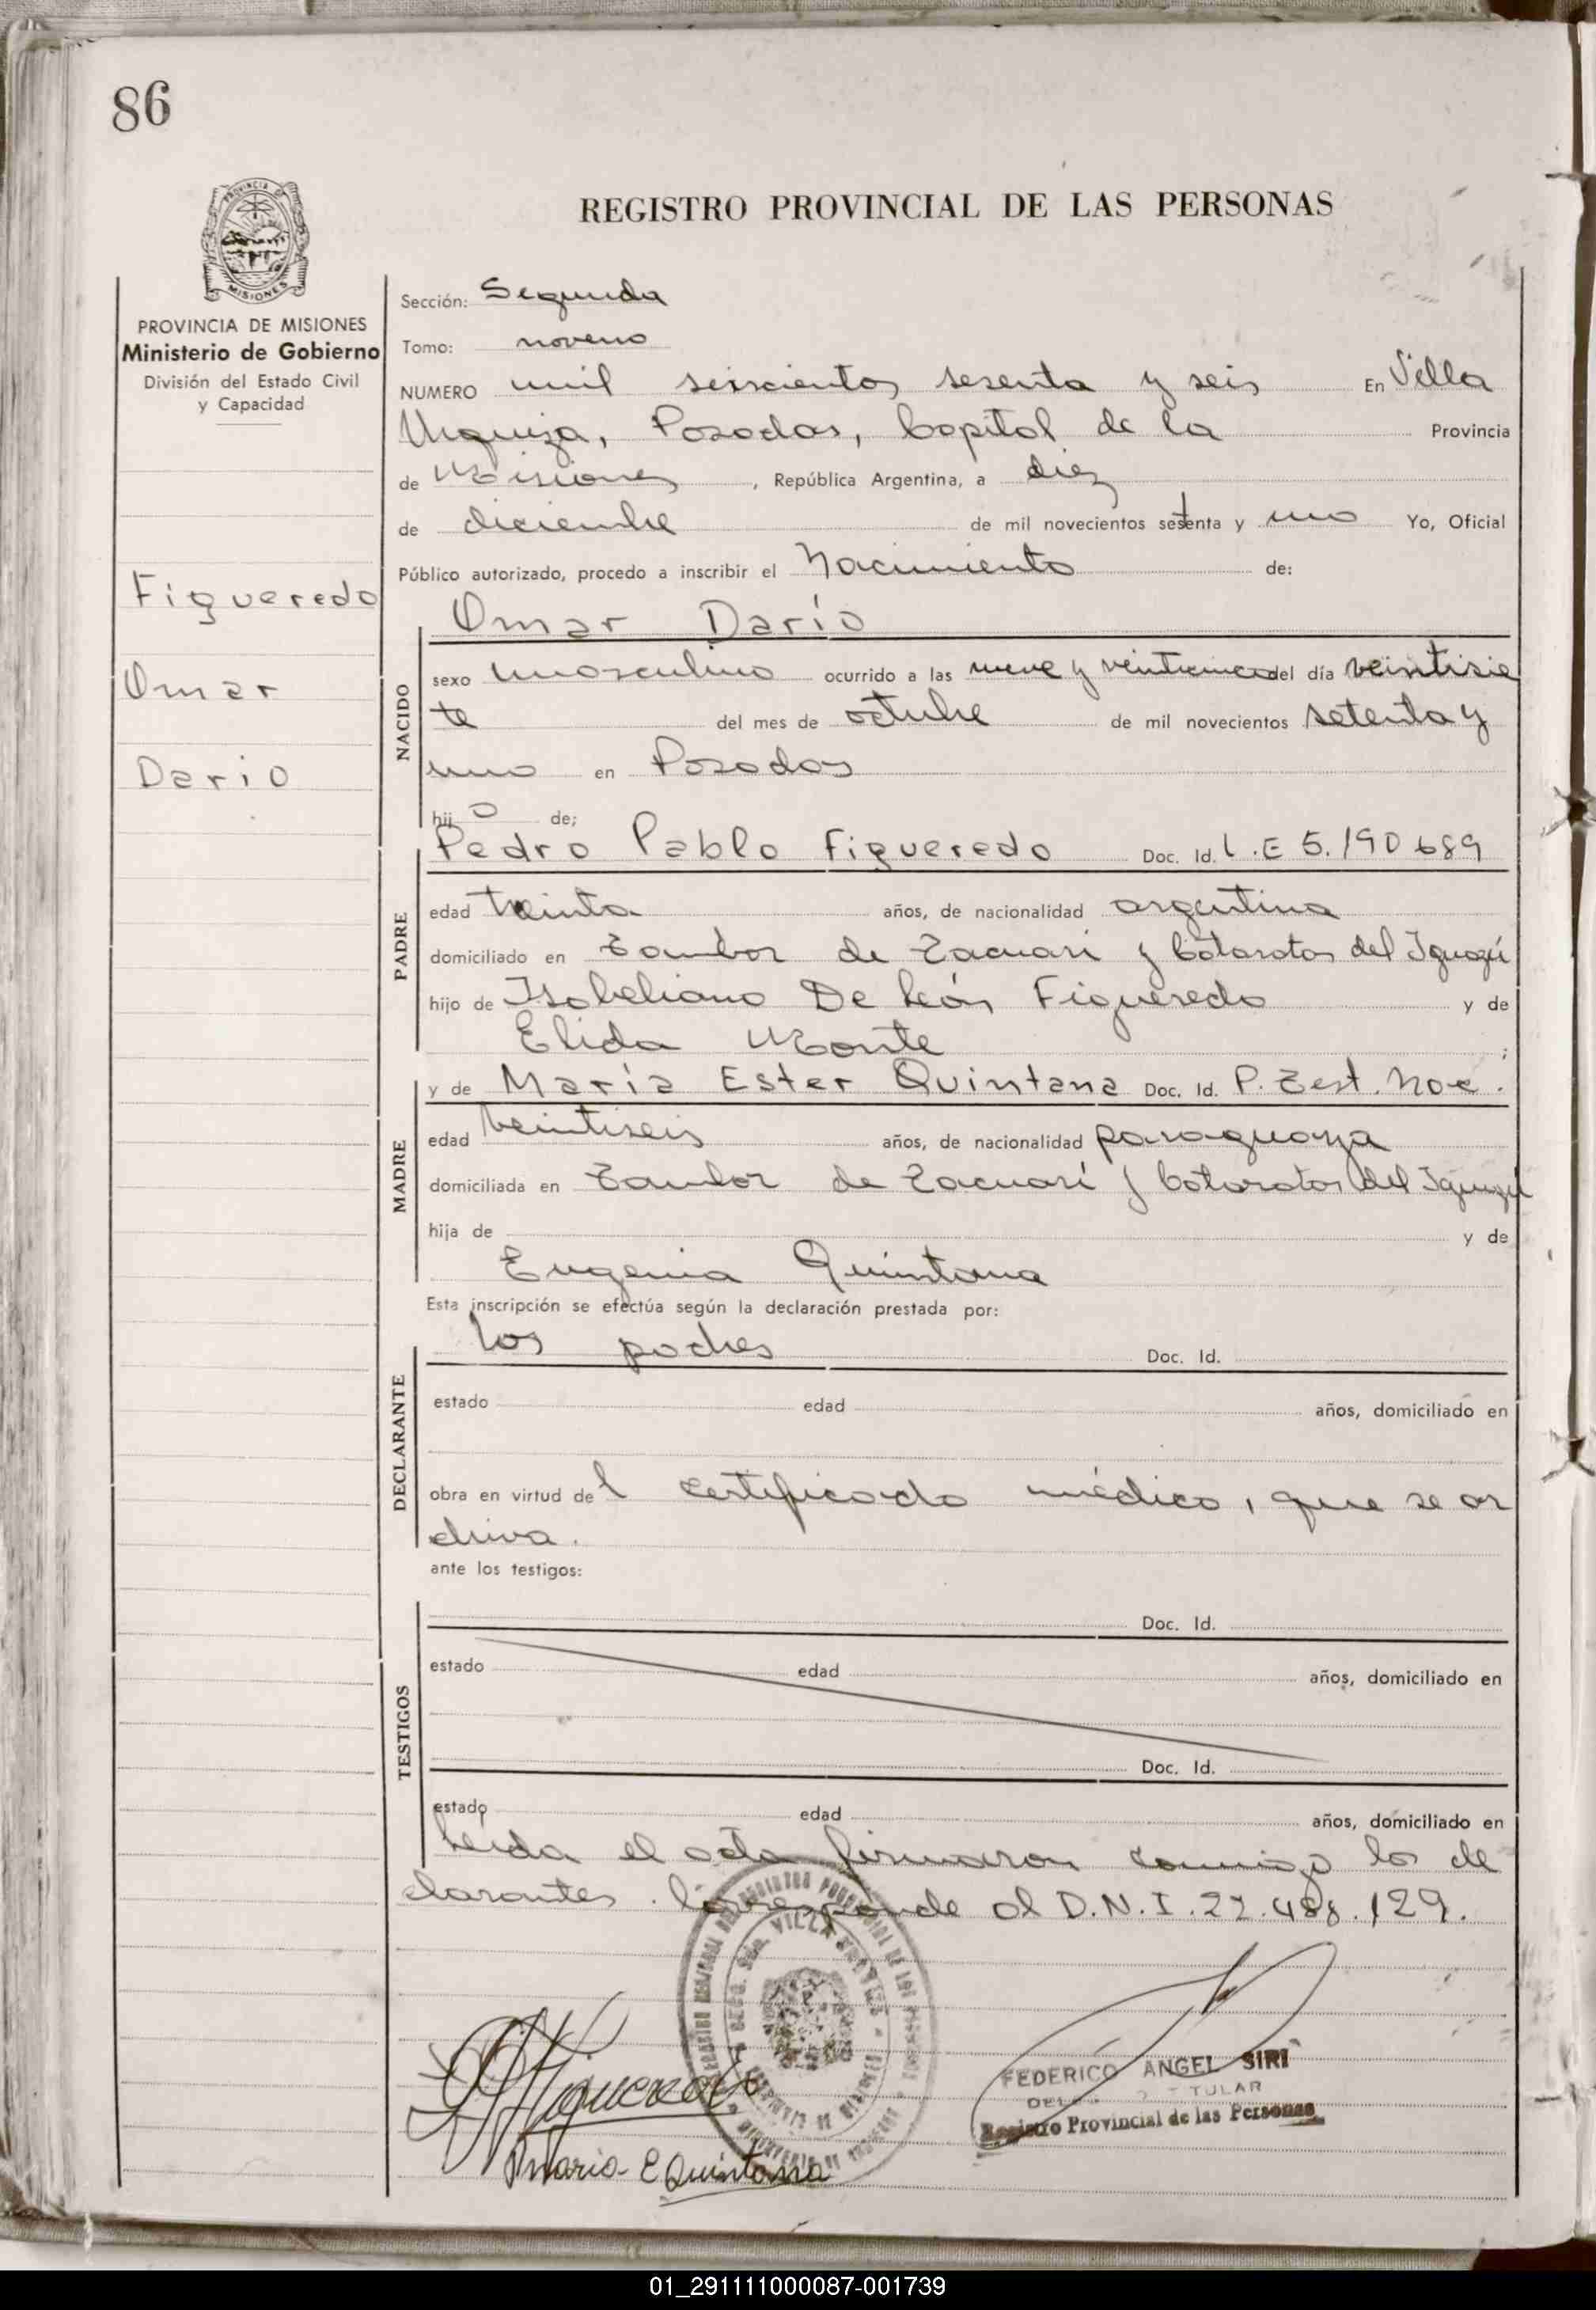 86
PROVINCIA DE
MISIONES
REGISTRO PROVINCIAL DE LAS PERSONAS
PROVINCIA DE MISIONES
Ministerio de Gobierno
División del Estado Civil
y Capacidad
Figueredo
Omar
Dario
Sección: Segunda
Tomo: noveno
NUMERO mil seiscientos sesenta y seis En Villa
Urquiza, Posadas, Capital de la Provincia
de Misiones, República Argentina, a diez
de diciembre de mil novecientos setenta y uno Yo, Oficial
Público autorizado, procedo a inscribir el Nacimiento de:
Omar Darío
NACIDO
sexo masculino ocurrido a las nueve y veinticinco del día veintisie
te del mes de octubre de mil novecientos setenta y
uno en Posadas
hijo de;
PADRE
Pedro Pablo Figueredo Doc. Id. L.E 5.190689
edad treinta años, de nacionalidad argentina
domiciliado en Tambor de Tacuari y Cataratas del Iguazú
hijo de Isabeliano De León Figueredo y de
Elida Monte ;
MADRE
y de María Ester Quintana Doc. Id. P. Test. Nac.
edad veintiseis años, de nacionalidad paraguaya
domiciliada en Tambor de Tacuarí y Cataratas del Iguazú
hija de y de
Eugenia Quintana
Esta inscripción se efectúa según la declaración prestada por:
DECLARANTE
los padres Doc. Id.
estado edad años, domiciliado en
obra en virtud del certificado médico, que se ar
chiva.
ante los testigos:
TESTIGOS
Doc. Id.
estado edad años, domiciliado en
Doc. Id.
estado edad años, domiciliado en
Leída el acta firmaron conmigo los de
clarantes. Corresponde al D.N.I. 22.488.129.
VILLA
Figueredo
Maria E Quintana
FEDERICO ANGEL SIRI
TULAR
Registro Provincial de las Personas
01_291111000087-001739